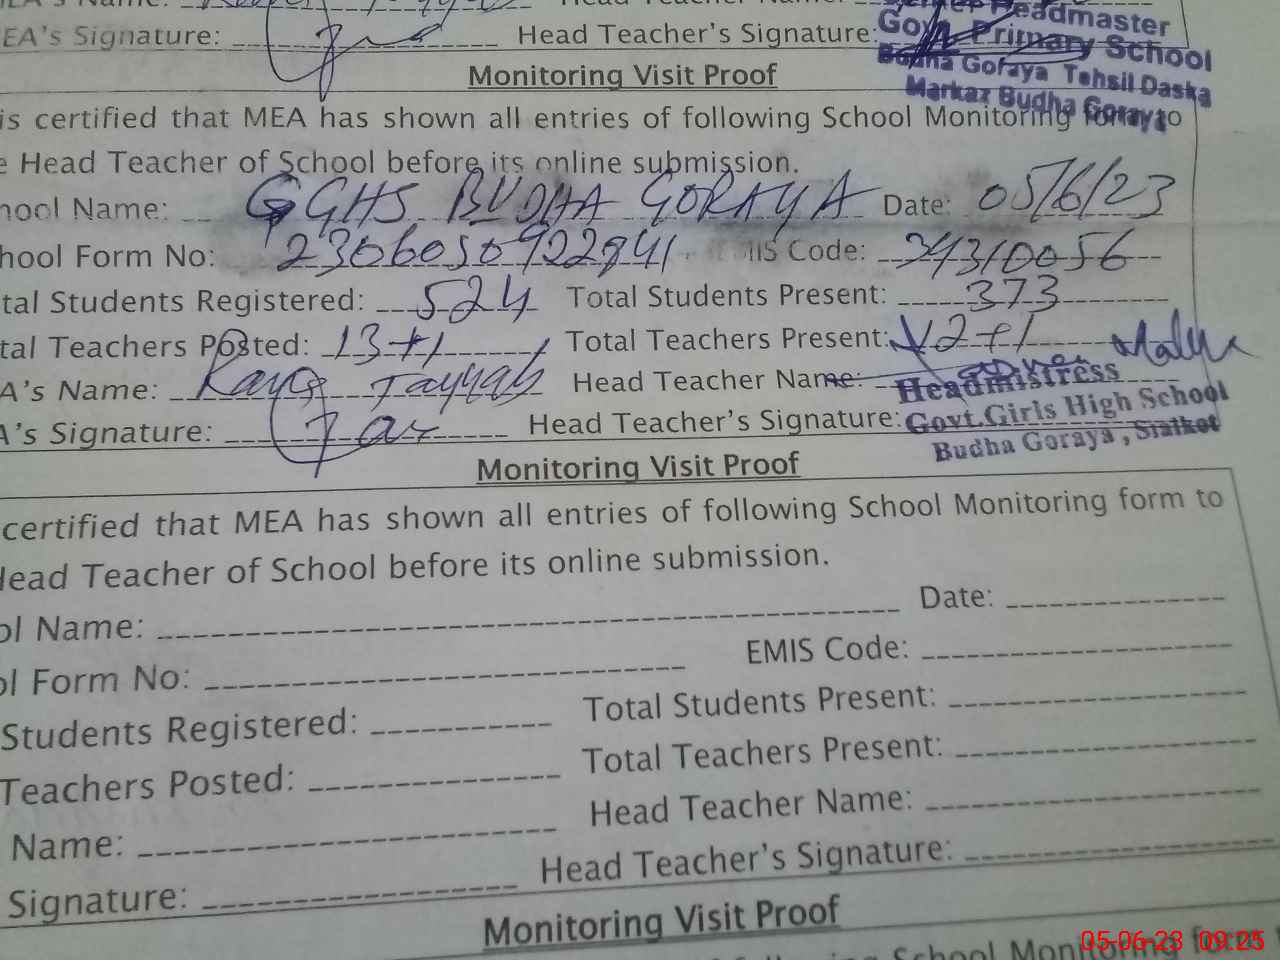 EA's Signature: Head Teacher's Signature:
Headmaster
Primary School
Budha Goraya Tehsil Daska
Markaz Budha Goraya
Monitoring Visit Proof
is certified that MEA has shown all entries of following School Monitoring form to
e Head Teacher of School before its online submission.
hool Name: GGHS BUDHA GORAYA Date: 05/6/23
hool Form No: 2306050922841 MIS Code: 34310056
tal Students Registered: 524 Total Students Present: 373
tal Teachers Posted: 13+1 Total Teachers Present: 12+1
A's Name: Tayyab Head Teacher Name:
Headmistress
A's Signature: Head Teacher's Signature: Govt.Girls High School
Budha Goraya, Sialkot
Monitoring Visit Proof
certified that MEA has shown all entries of following School Monitoring form to
Head Teacher of School before its online submission.
ol Name: Date:
ol Form No: EMIS Code:
Students Registered: Total Students Present:
Teachers Posted: Total Teachers Present:
Name: Head Teacher Name:
Signature: Head Teacher's Signature:
Monitoring Visit Proof
School Monitoring form
05-06-23 09:25